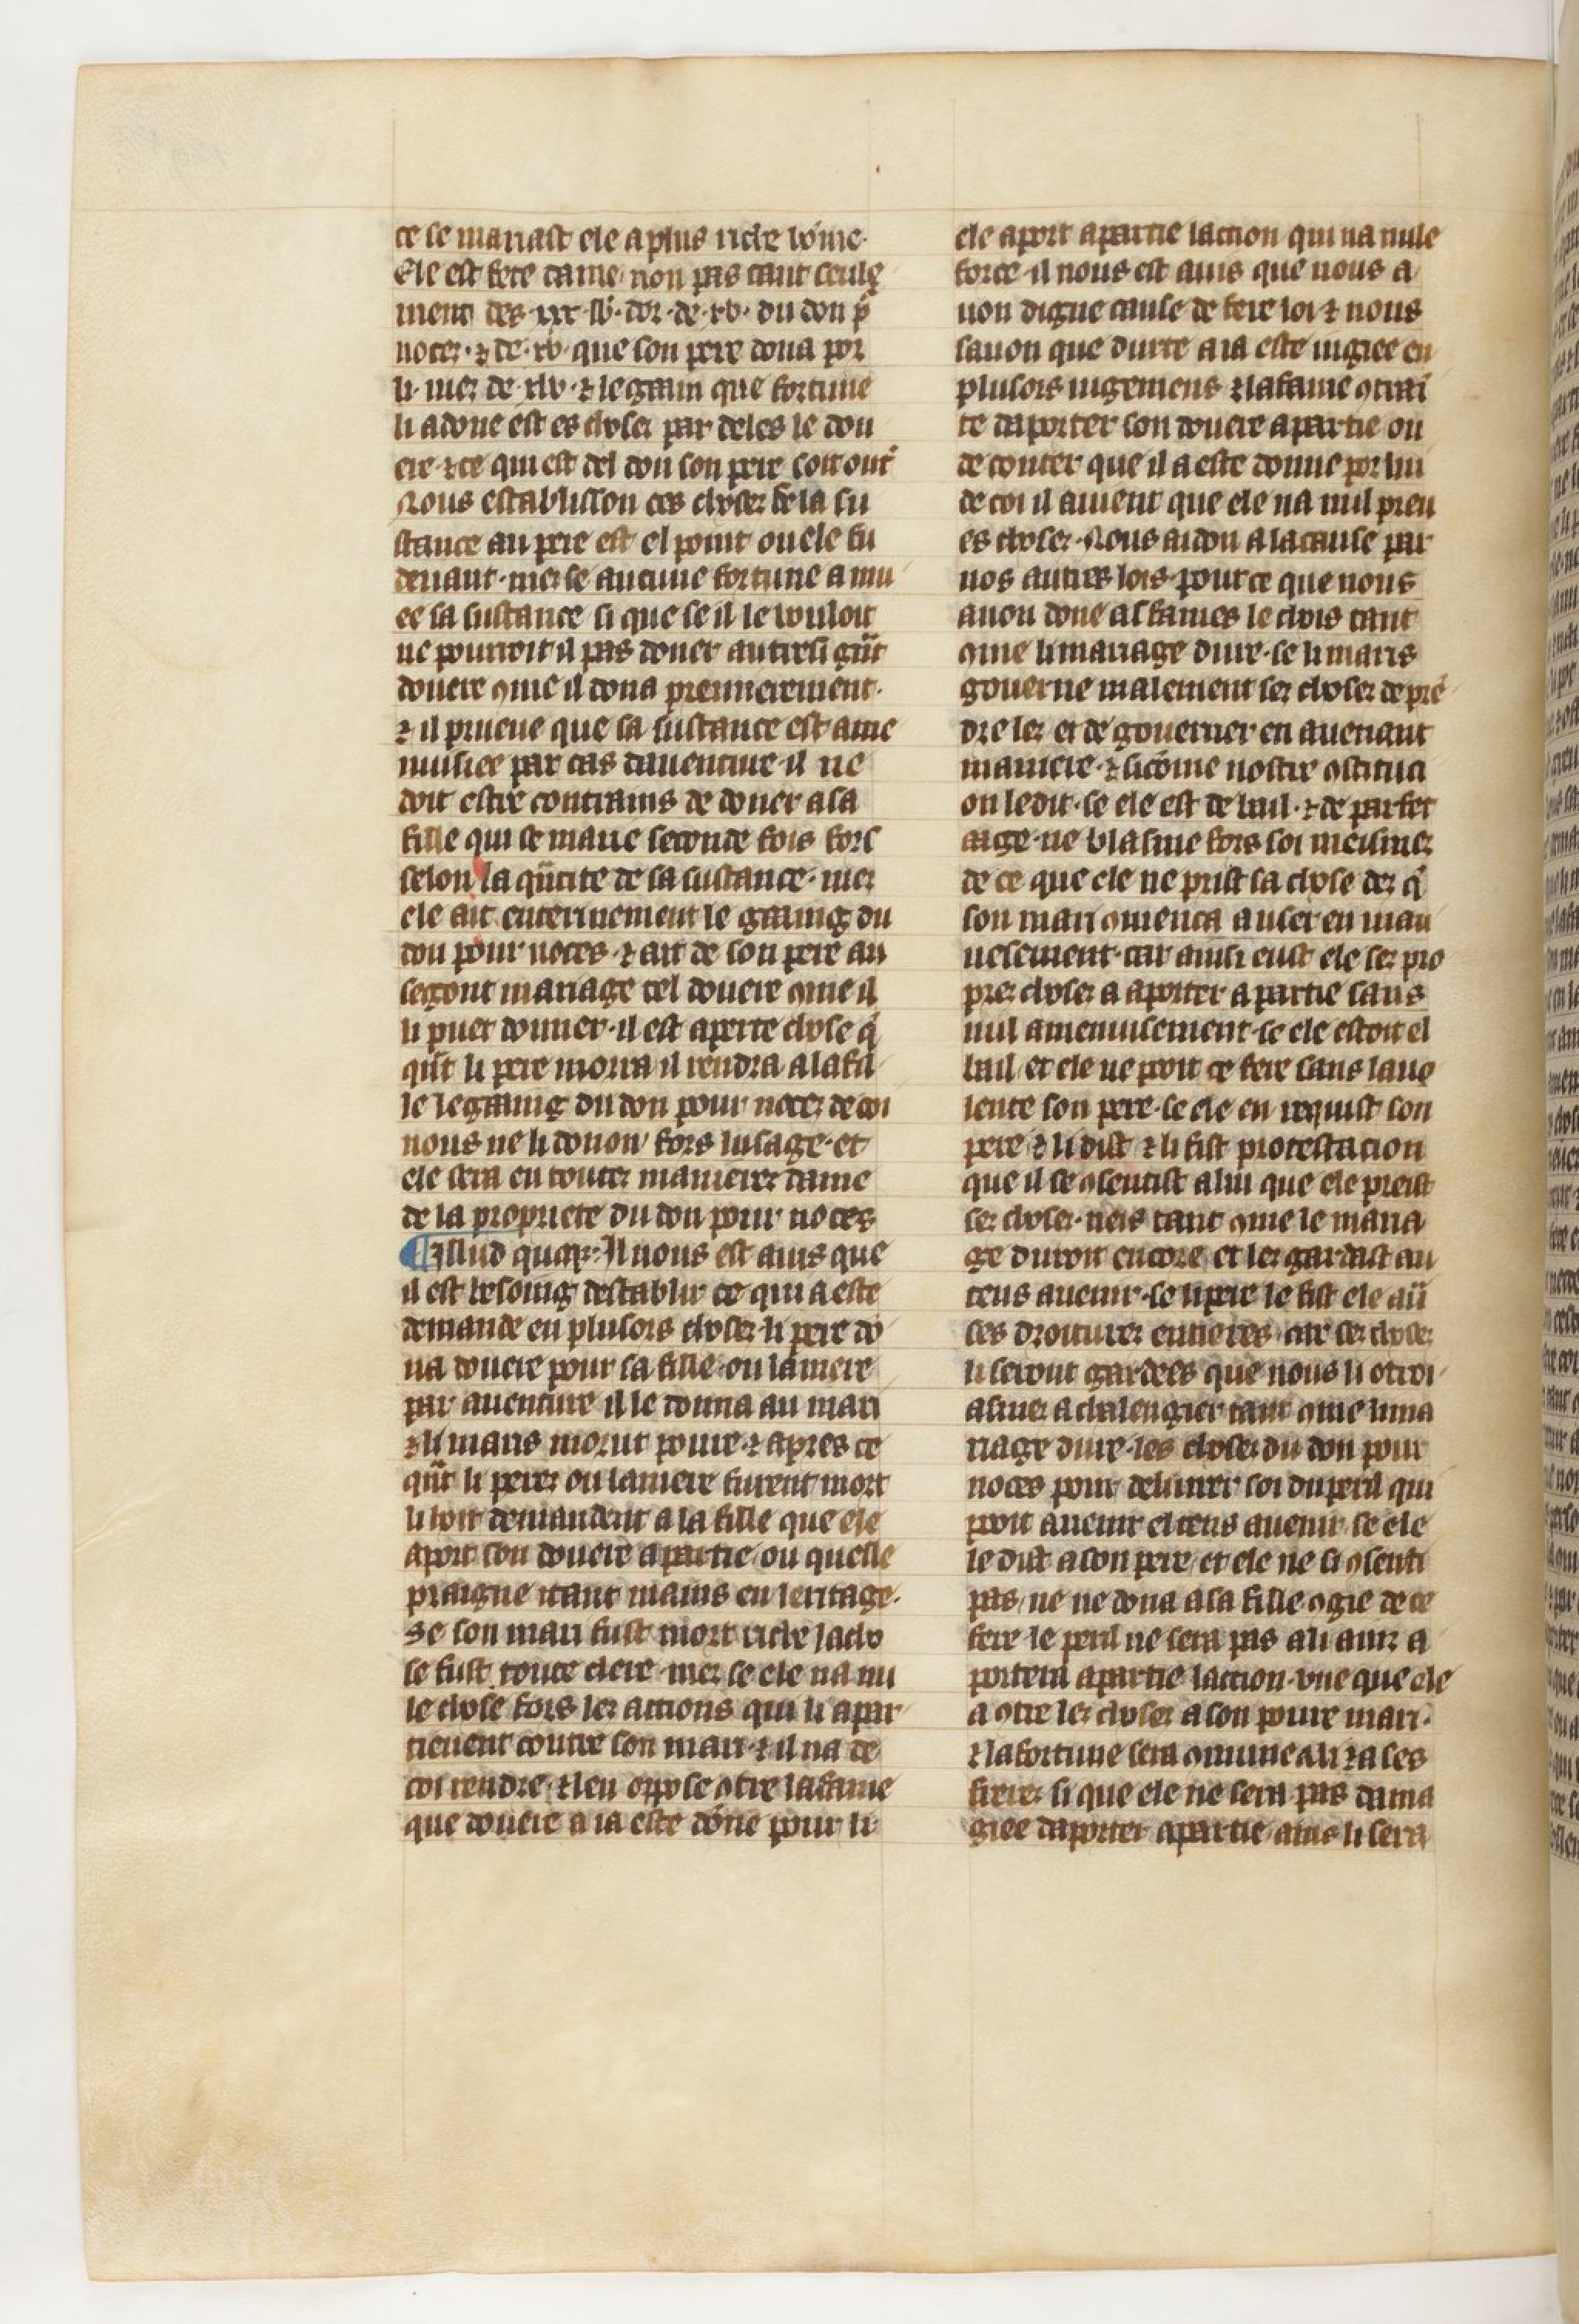 ce se mariast ele a plus riche hōme·
Ele est fete dame non pas tant seule
ment des ·xxx· lb· dor· de ·xv· du don p̄
noces· ⁊ de ·xv· que son pere dona por
li· mes de ·xlv· ⁊ le gaain que fortune
li a doné est es choses par deles le dou
ere ⁊ ce qui est del don son pere soit out̄
Nous establisson ces choses se la su
stance au pere est el point ou ele fu
deuant· mes se aucune fortune a mu
ee sa sustance si que se il le vouloit
ne pourroit il pas doner autresi gn̄t
douere ꝯme il dona premierement·
⁊ il prueue que sa sustance est ame
nuisiee par cas dauenture· il ne
doit estre contrains de doner a la
fille qui se marie seconde fois fors
selon la qn̄tite de sa sustance· mes
ele ait enterinement le gaaing du
don pour noces· ⁊ ait de son pere au
segont mariage tel douere ꝯme il
li puet donner· il est aperte chose q̄
qn̄t li pere morra il rendra a la fil
le le gaaing du don pour noces de coi
nous ne li donon fors lusage· et
ele sera en toutes manieres dame
de la propriete du don pour noces
¶ Illud quoqꝫ· Il nous est auis que
il est besoing destablir ce qui a este
demande en plusors choses· li pere dō
na douere pour sa fille· ou la mere
par auenture il le donna au mari
⁊ li maris morut poure· ⁊ apres ce
qn̄t li peres ou la mere furent mort
li hoir demandent a la fille que ele
aport son douere a partie ou quelle
praigne itant mains en leritage·
Se son mari fust mort riche la cho
se fust toute clere· mes se ele na nu
le chose fors les actions qui li apar
tienent contre son mari· ⁊ il na de
coi rendre· ⁊ len oppose ꝯtre la fame
que douere a ia este dōne pour li·
ele aport a partie laction qui na nule
force· il nous est auis que nous a
uon digne cause de fere loi ⁊ nous
sauon que durte a ia este iugiee en
plusors iugemens ⁊ la fame ꝯtrai
te daporter son douere a partie ou
de conter que il a este donne por lui
de coi il auient que ele na nul preu
es choses· Nous aidon a la cause par
nos autres lois· pour ce que nous
auon doné as fames le chois tant
ꝯme li mariage dure· se li maris
gouerne malement ses choses de prē
dre les et de gouerner en auenant
maniere· ⁊ sicōme nostre ꝯstituci
on le dit· se ele est de bail· ⁊ de parfet
aage· ne blasme fors soi meismes
de ce que ele ne prist la chose des q̄
son mari ꝯmenca a user en mau
uesement· car ainsi eust ele ses pro
pres choses a aporter a partie sans
nul amenuisement· se ele estoit el
bail et ele ne pout ce fere sans laue
lente son pere· se ele en requist son
pere ⁊ li dist ⁊ li fist protestacion
que il se ꝯsentist a lui que ele preist
ses choses· neis tant ꝯme le maria
ge duroit encore et les gardast au
tens auenir· se li pere le fist ele aū
ses droitures entieres· car ses choses
li seront gardees que nous li otroi
asmes a chalengier tant ꝯme li ma
riage dure· les choses du don pour
noces pour deliurer soi du peril qui
pout auenir el tens auenir· se ele
le dist a son pere et ele ne si ꝯsenti
pas ne ne dona a sa fille ꝯgie de ce
fere· le peril ne sera pas a li ainz a
portera a partie laction· vne que ele
a ꝯtre les choses a son poure mari·
⁊ la fortune sera ꝯmune a li ⁊ a ses
freres si que ele ne sera pas dama
giee daporter a partie· ains li sera